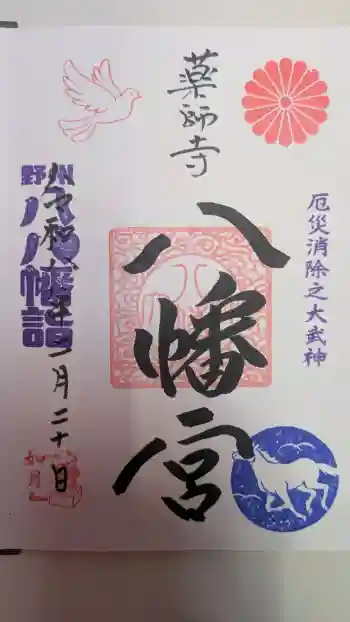 薬師寺
八幡宮
厄災消除之大武神
野州
八八幡詣
令和六年一月二十日
如月